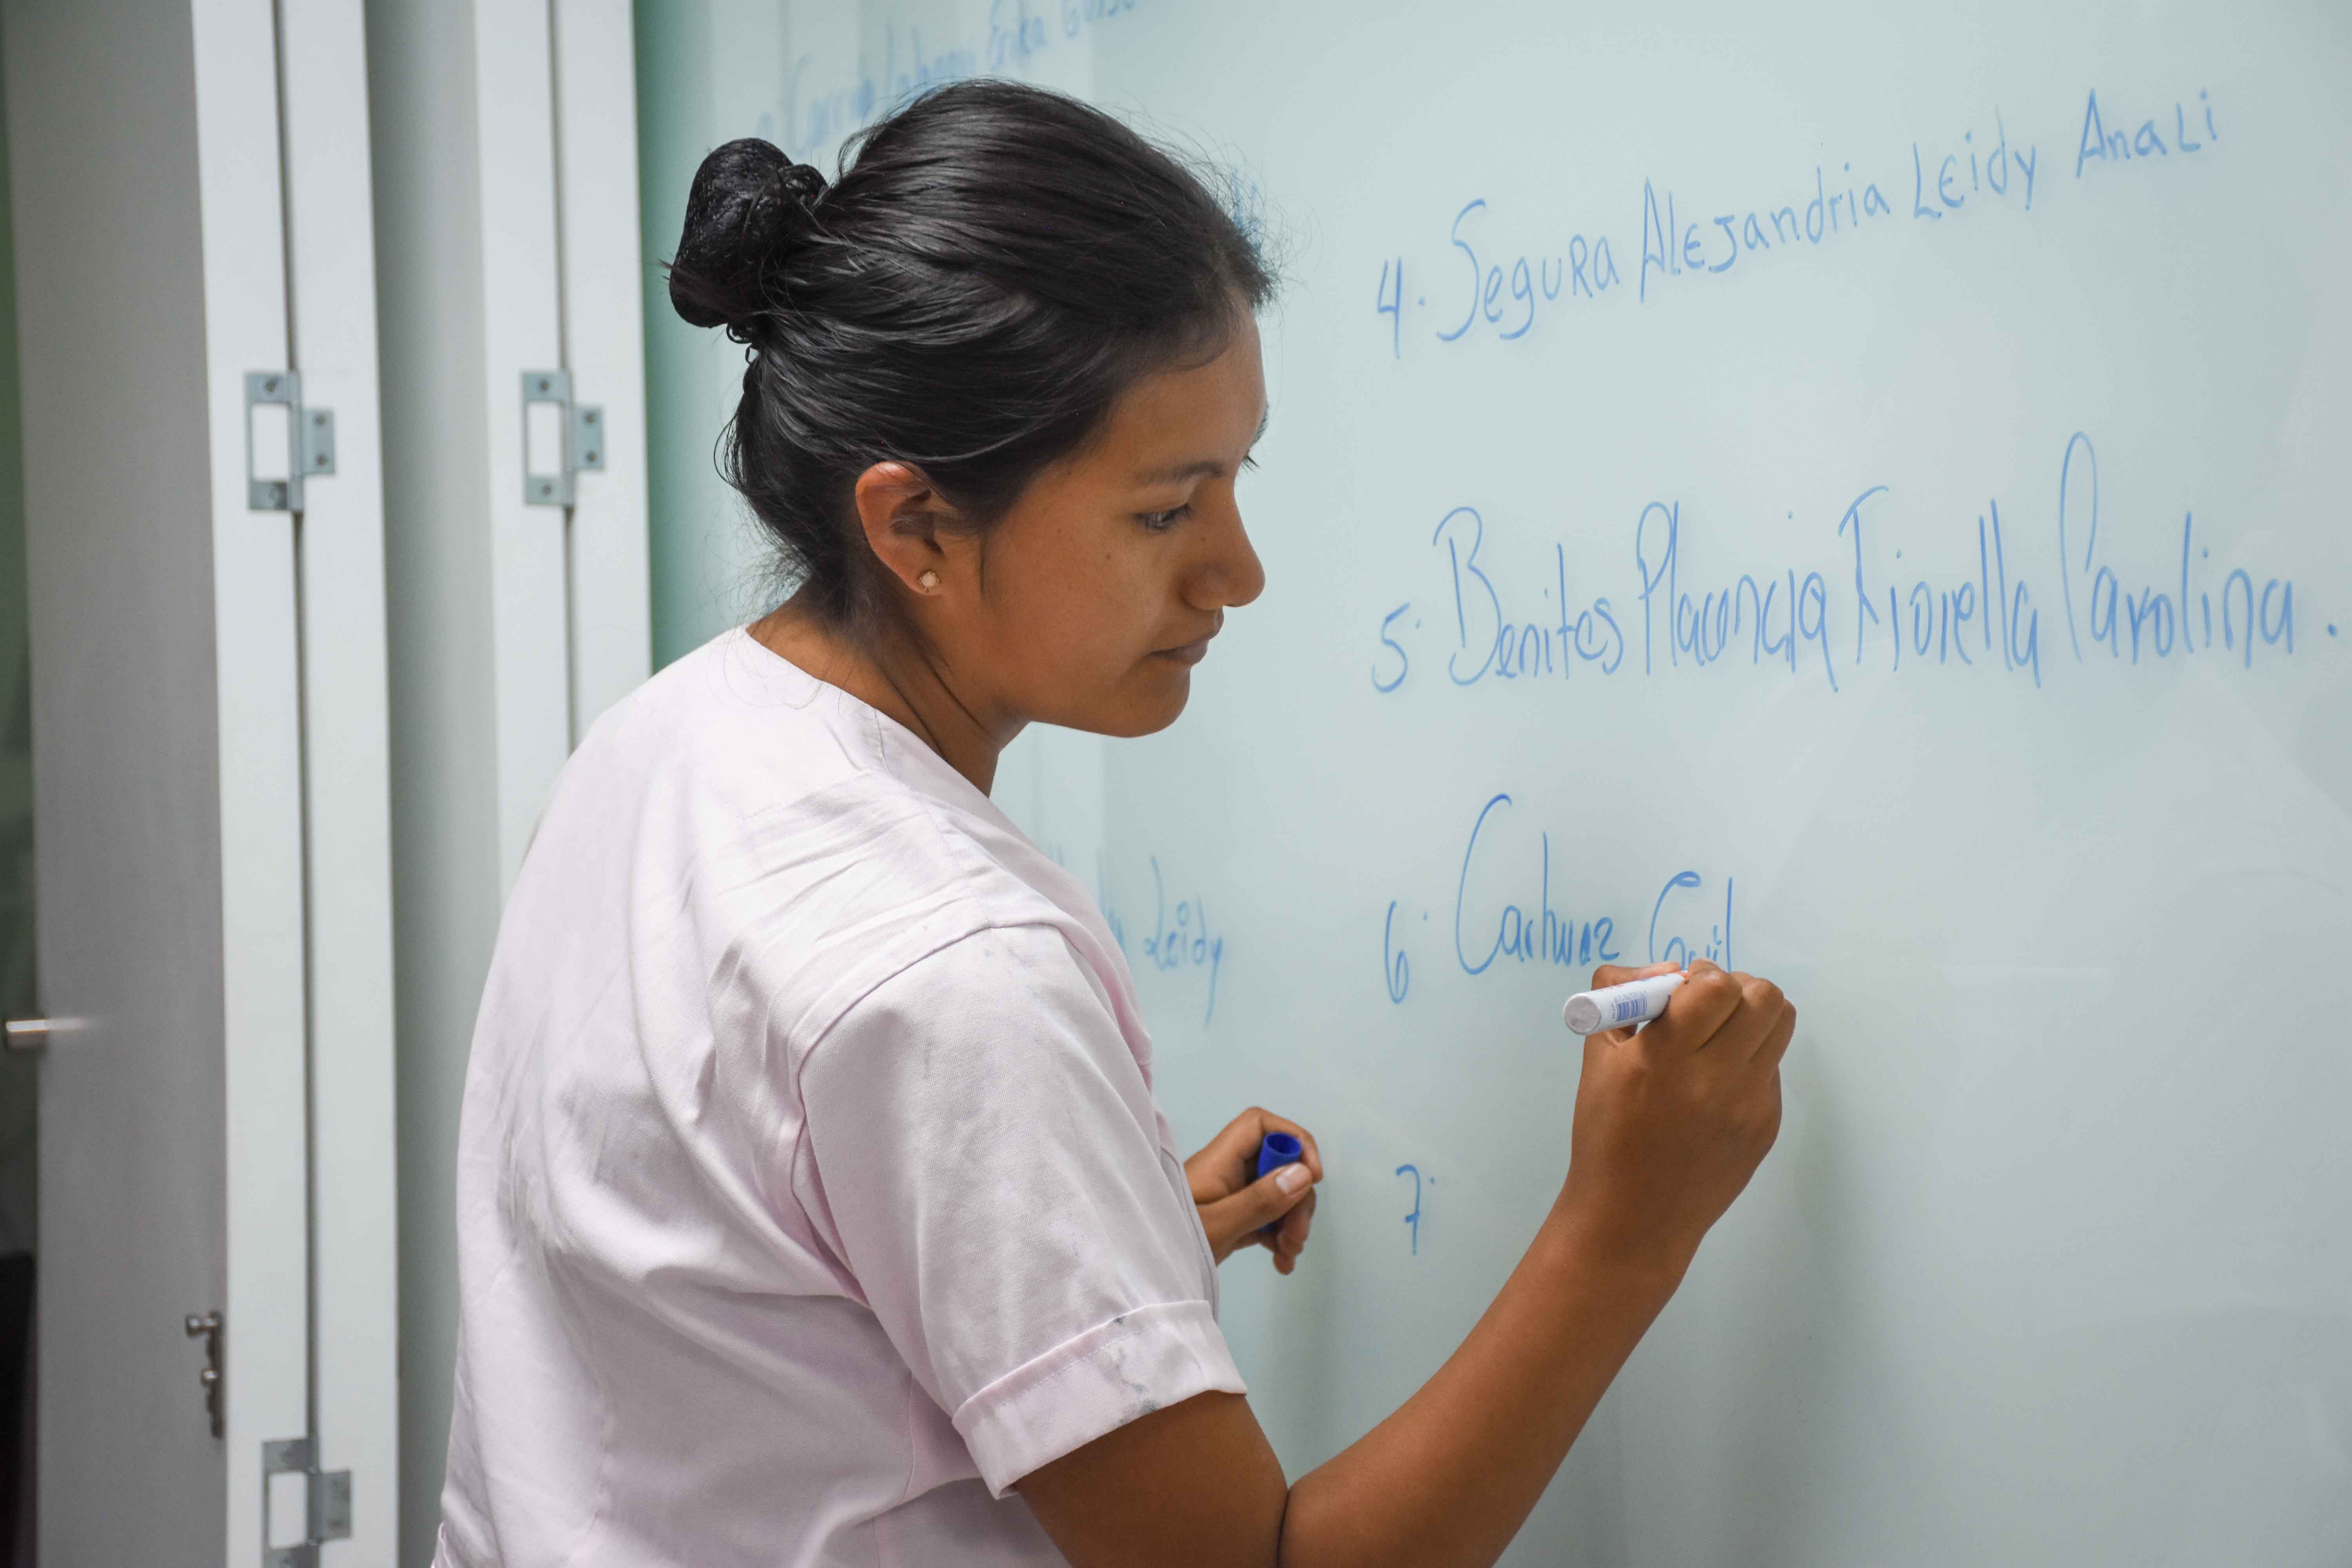 4. Segura Alejandria Leidy Anali
5. Benites Placencia Fiorella Carolina.
6. Carhuaz
7.
Leidy